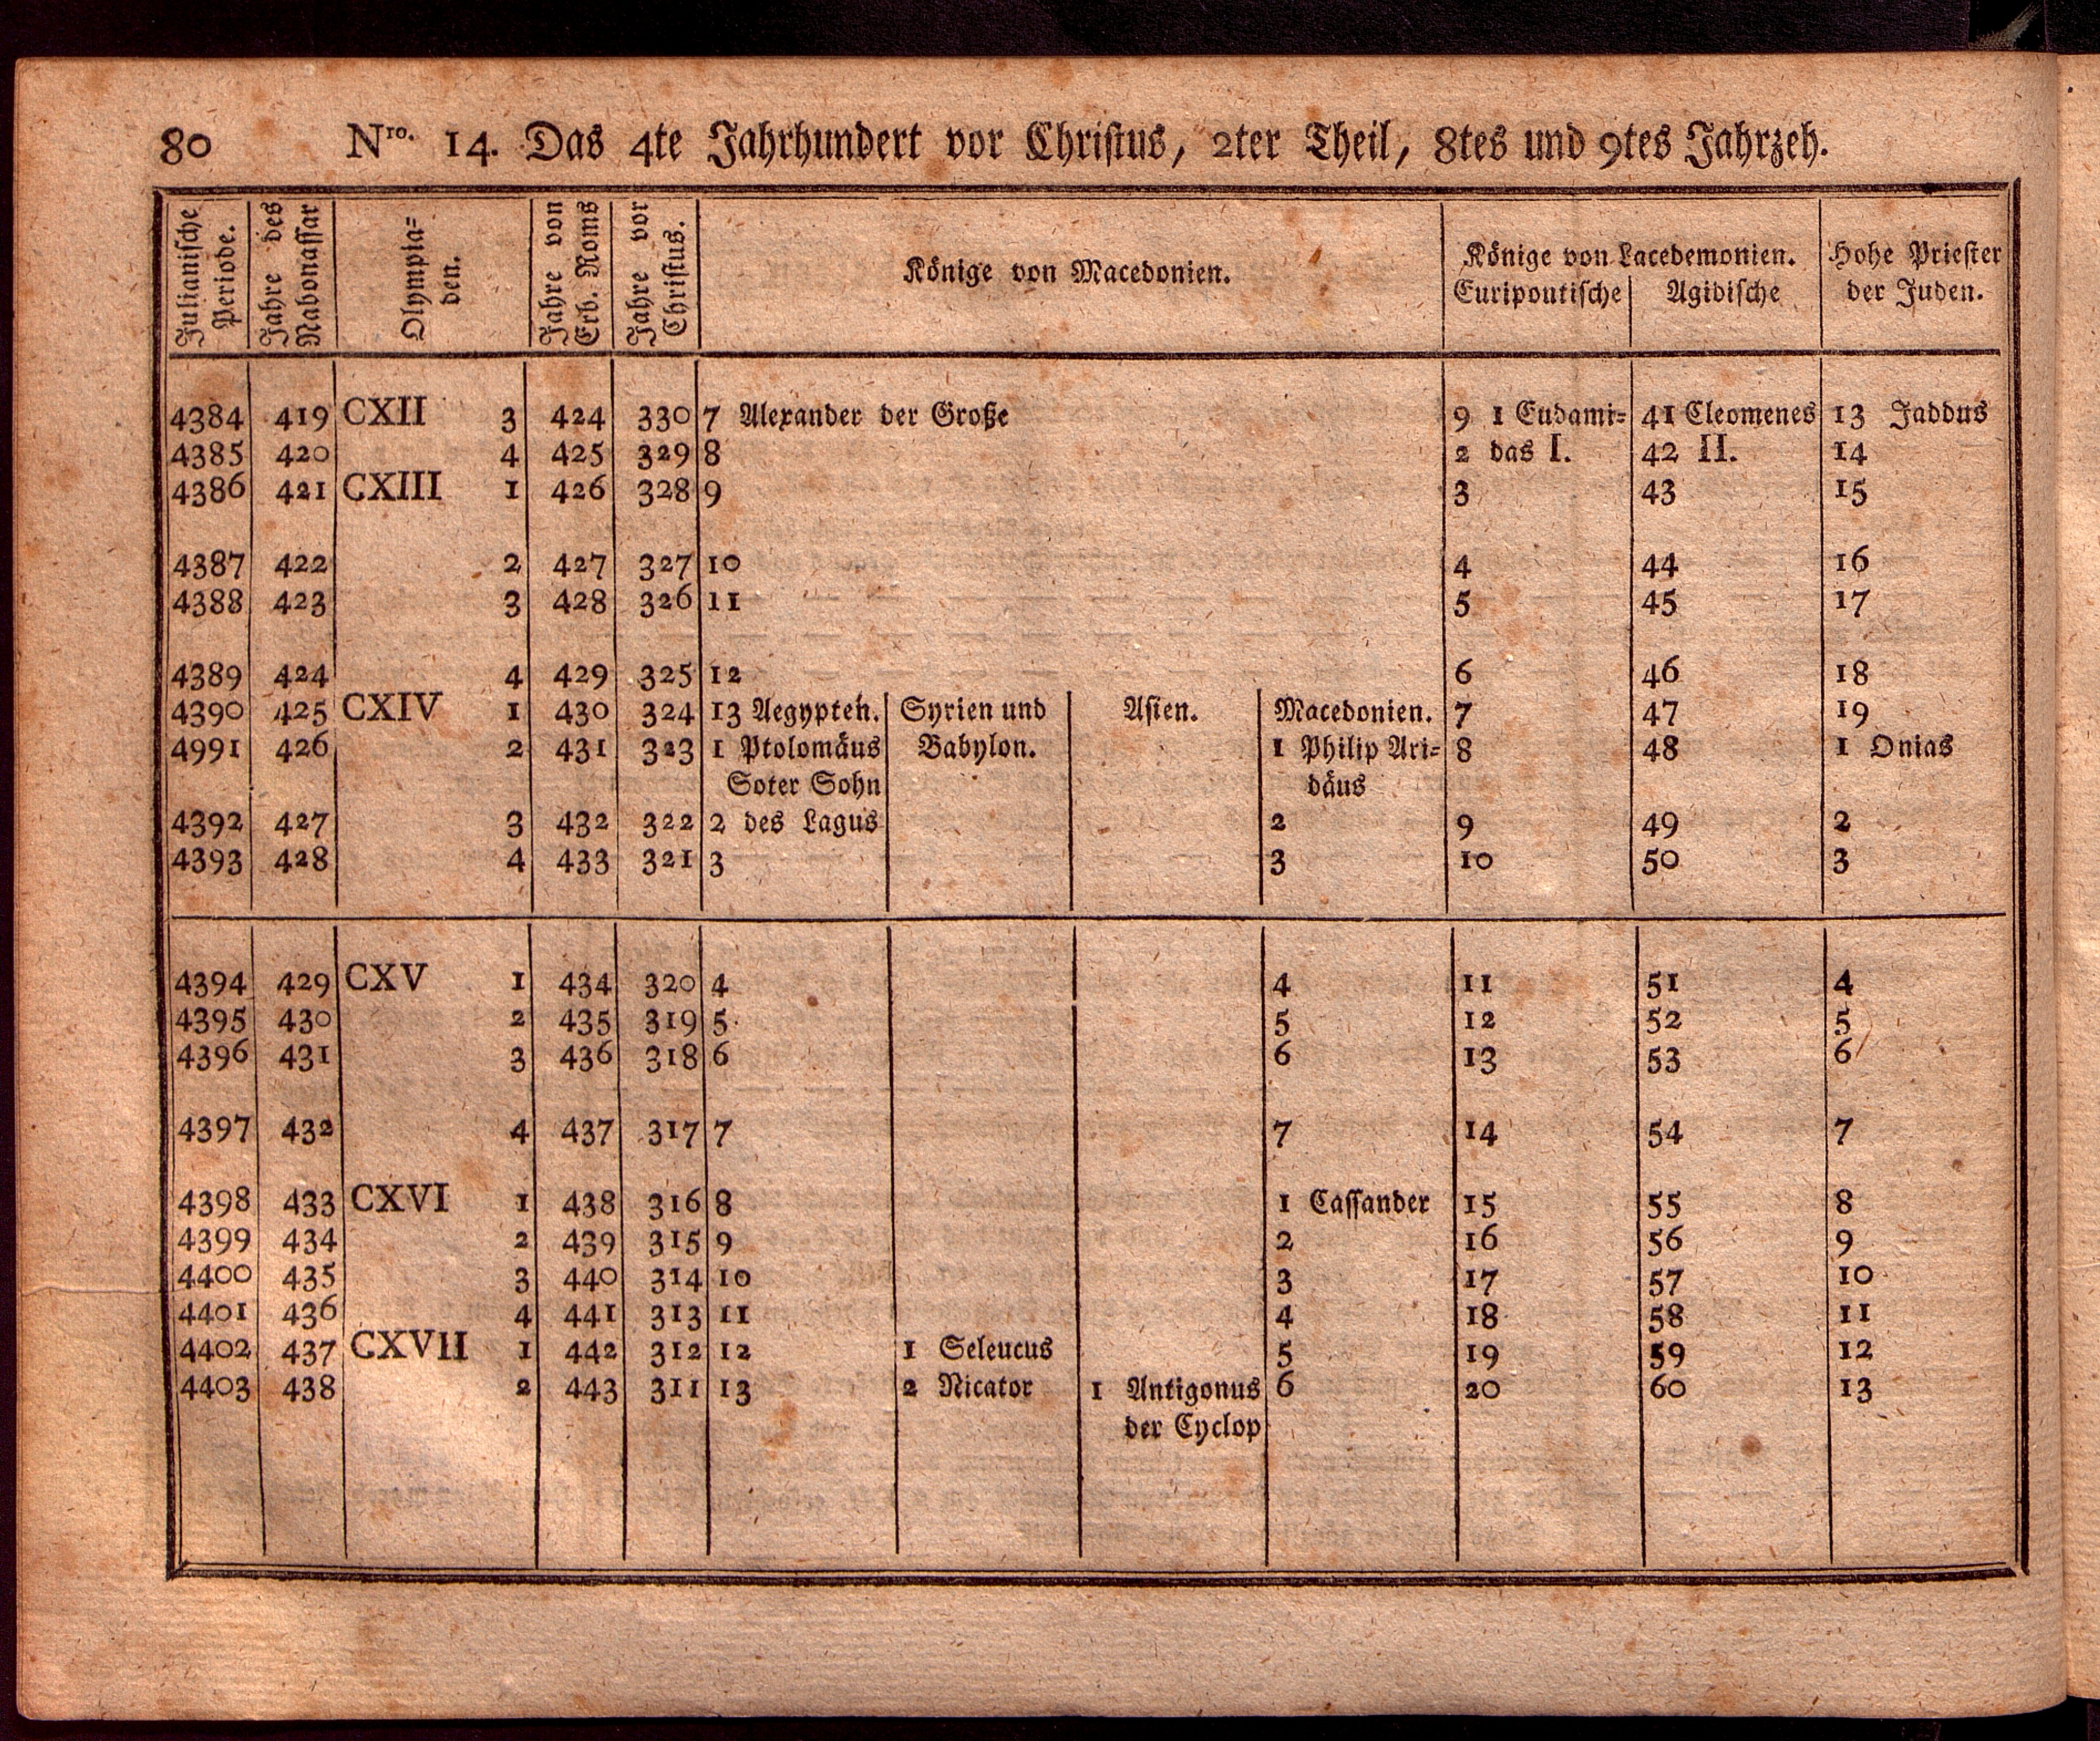 80 Nro. 14. Das 4te Jahrhundert vor Christus, 2ter Theil, 8tes und 9tes Jahrzeh.
Julianische Periode. Jahre des Nabonassar Olympia= den. Jahre von Erb. Roms Jahre vor Christus. Könige von Macedonien. Könige von Lacedemonien. Hohe Priester
Euripontische Agidische der Juden.
4384 419 CXII 3 424 330 7 Alexander der Große 9 1 Eudami= 41 Cleomenes 13 Jaddus
4385 420 4 425 329 8 2 das I. 42 II. 14
4386 421 CXIII 1 426 328 9 3 43 15
4387 422 2 427 327 10 4 44 16
4388 423 3 428 326 11 5 45 17
4389 424 4 429 325 12 6 46 18
4390 425 CXIV 1 430 324 13 Aegypten. Syrien und Asien. Macedonien. 7 47 19
4991 426 2 431 323 1 Ptolomäus Babylon. 1 Philip Ari= 8 48 1 Onias
Soter Sohn däus
4392 427 3 432 322 2 des Lagus 2 9 49 2
4393 428 4 433 321 3 3 10 50 3
4394 429 CXV 1 434 320 4 4 11 51 4
4395 430 2 435 319 5 5 12 52 5
4396 431 3 436 318 6 6 13 53 6
4397 432 4 437 317 7 7 14 54 7
4398 433 CXVI 1 438 316 8 1 Cassander 15 55 8
4399 434 2 439 315 9 2 16 56 9
4400 435 3 440 314 10 3 17 57 10
4401 436 4 441 313 11 4 18 58 11
4402 437 CXVII 1 442 312 12 1 Seleucus 5 19 59 12
4403 438 2 443 311 13 2 Nicator 1 Antigonus 6 20 60 13
der Cyclop